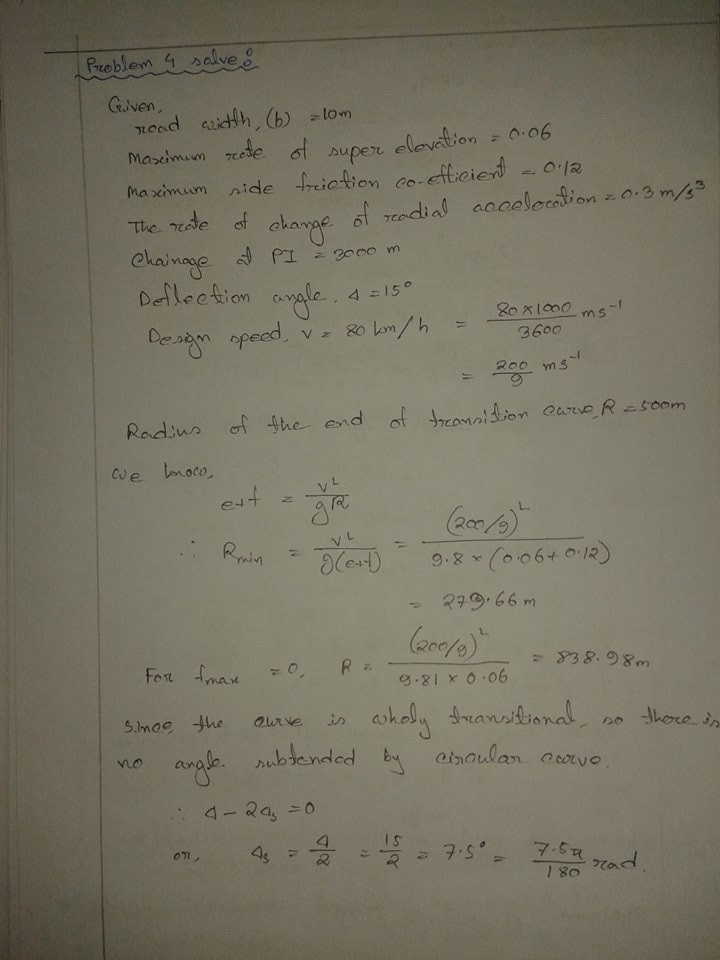 Problem 4 solve:
Given,
road width, (b) = 10m
Maximum rate of super elevation = 0.06
Maximum side friction co-efficient = 0.12
The rate of change of radial acceleration = 0.3 m/s³
Chainage at PI = 3000 m
Deflection angle, Δ = 15°
Design speed, v = 80 km/h = 80×1000/3600 ms⁻¹
= 200/9 ms⁻¹
Radius of the end of transition curve, R = 500m
we know,
e+f = v²/gR
∴ Rmin = v²/g(e+f) = (200/9)²/9.8×(0.06+0.12)
= 279.66m
For fmax = 0, R = (200/9)²/9.81×0.06 = 838.98m
Since, the curve is wholy transitional, so there is
no angle subtended by circular curve.
∴ Δ - 2Δs = 0
or, Δs = Δ/2 = 15/2 = 7.5° = 7.5π/180 rad.